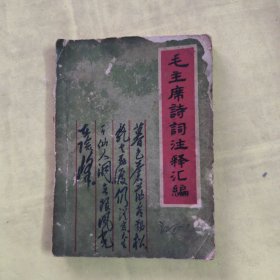 毛主席詩詞注释汇編
暮色蒼茫看劲松
乱云飞渡仍从容天生一
个仙人洞无限風光
在險峰